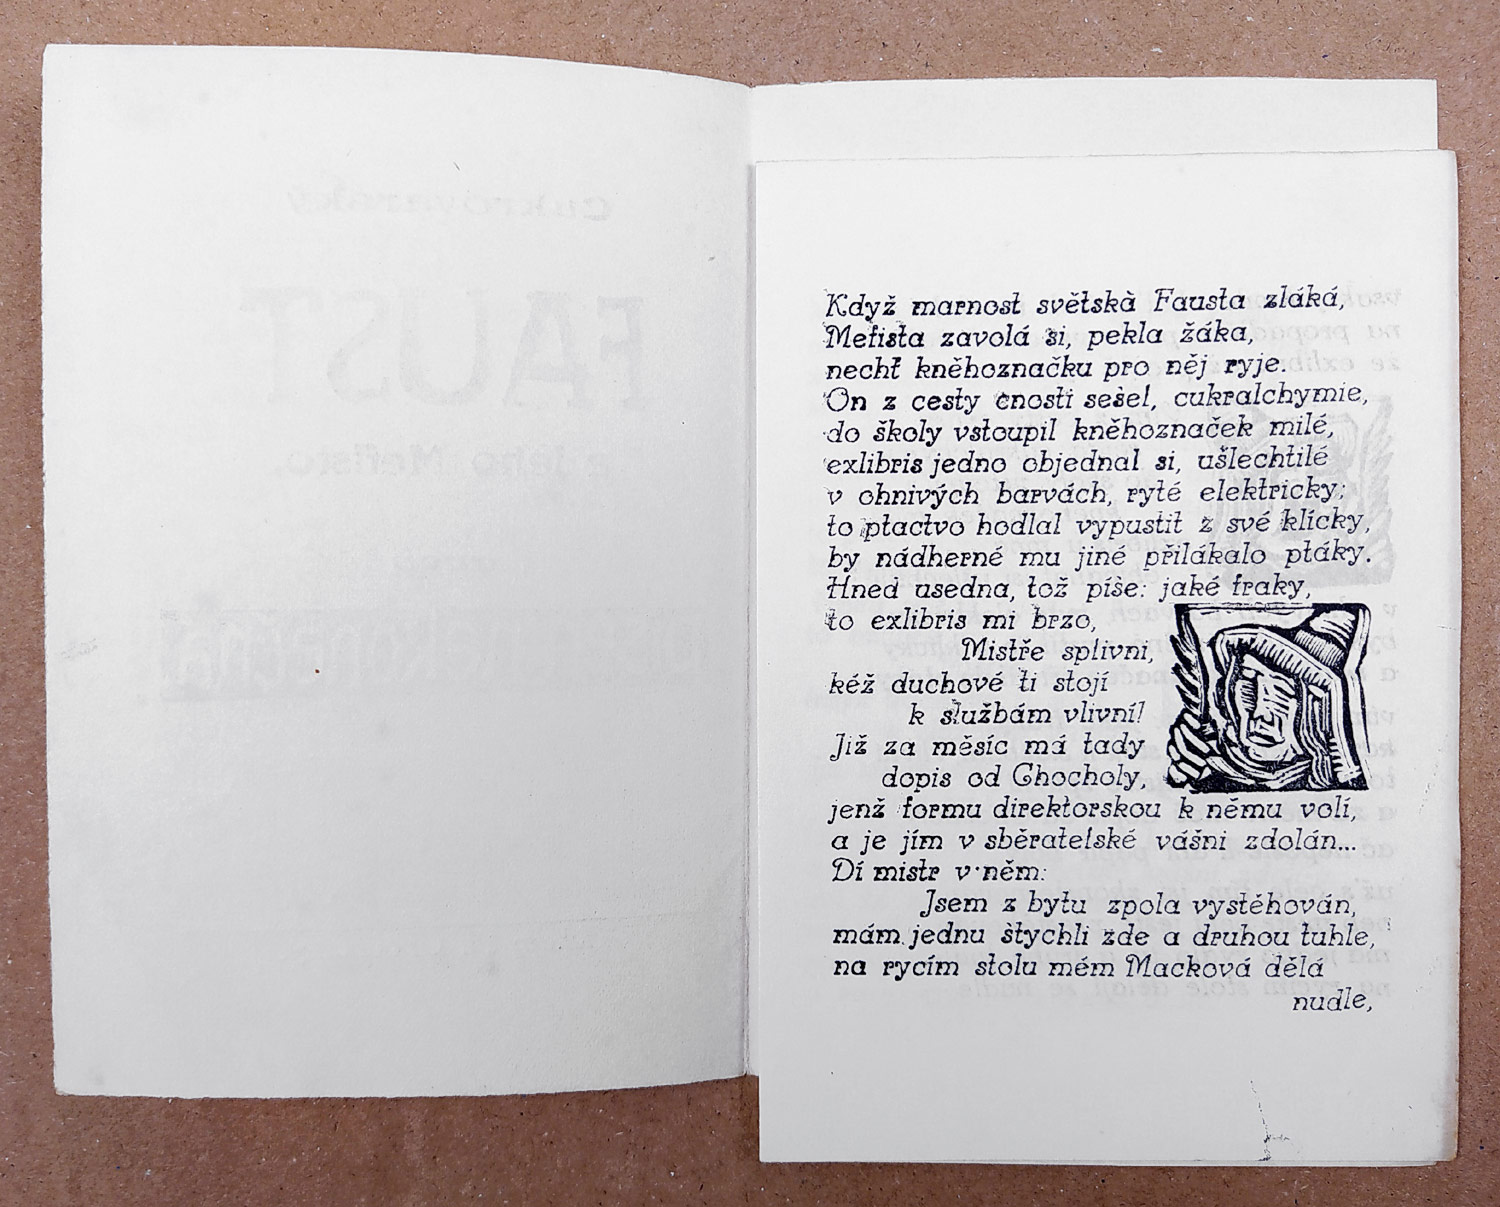 Když marnost světskà Fausta zláká,
Mefista zavolá si, pekla žáka,
nechť kněhoznačku pro něj ryje.
On z cesty cnosti sešel, cukralchymie,
do školy vstoupil kněhoznaček milé,
exlibris jedno objednal si, ušlechtilé
v ohnivých barvách, ryté elektricky;
to ptactvo hodlal vypustit z své klícky,
by nádherné mu jiné přilákalo ptáky.
Hned usedna, tož píše: jaké fraky,
to exlibris mi brzo,
Mistře splivni,
kéž duchové ti stojí
k službám vlivní!
Již za měsíc má tady
dopis od Chocholy,
jenž formu direktorskou k němu volí,
a je jím v sběratelské vášni zdolán...
Dí mistr v něm:
Jsem z bytu zpola vystěhován,
mám jednu štychli zde a druhou tuhle,
na rycím stolu mém Macková dělá
nudle,